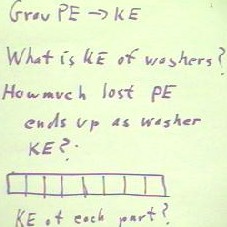 Grav PE → KE
What is KE of washers?
How much lost PE
ends up as washer
KE?
KE of each part?